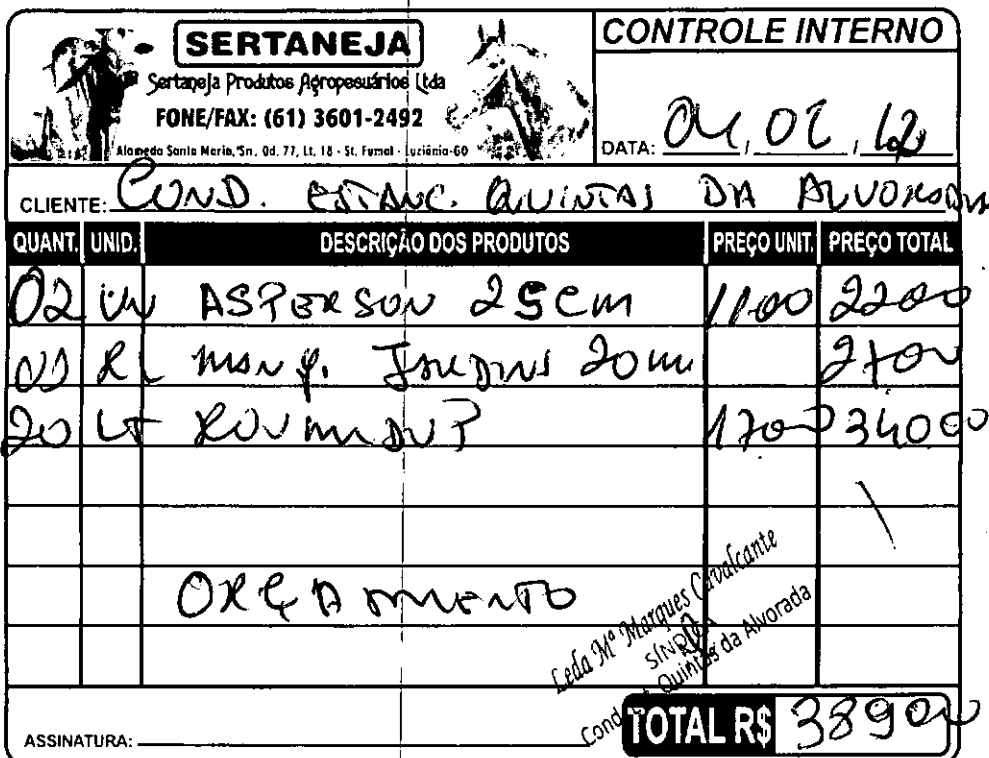 SERTANEJA
Sertaneja Produtos Agropesuários Ltda
FONE/FAX: (61) 3601-2492
Alameda Santa Maria, Sn, Qd. 77, Lt. 18 - St. Fumal - Luziânia-GO
CONTROLE INTERNO
DATA: 01, 02, 12
CLIENTE: COND. ESTANC. QUINTAS DA ALVORADA
QUANT. UNID. DESCRIÇÃO DOS PRODUTOS PREÇO UNIT. PREÇO TOTAL
02 UN ASPERSOR 25CM 1100 2200
01 RL MANG. JARDINS 20m 2700
20 LT ROUNDUP 1700 34000
ORÇAMENTO
Leda Mª Marques Cavalcante
SÍNDICA
Cond. Quintas da Alvorada
TOTAL R$ 38900
ASSINATURA: